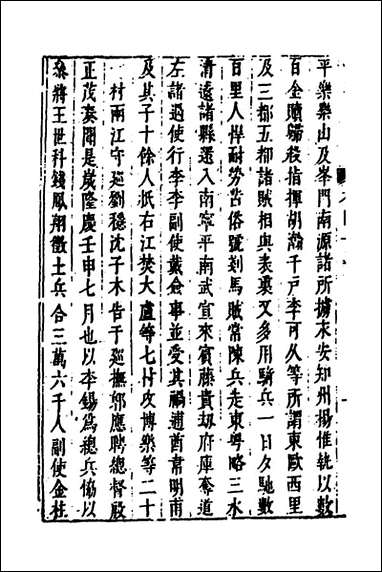 平樂樂山及峯門南源諸所據永安知州楊惟執以數
百金贖歸殺指揮胡瀚千戶李可久等所謂東歐西里
及三都五都諸賊相與表裏又多用騎兵一日夕馳數
百里人悍耐勞苦俗號剗馬賊常陳兵走東粵略三水
清遠諸縣還入南寧平南武宣來賓藤貴刼府庫奪道
左諸過使行李李副使戴僉事並受其禍逋酋韋明甫
及其子十餘人扺右江焚大廬等七村攻博樂等二十
一村兩江守廵劉穩沈子木告于廵撫郭應聘總督殷
正茂奏聞是歲隆慶壬申七月也以李錫爲總兵協以
叅將王世科錢鳳翔徵土兵合三萬六千人副使金柱